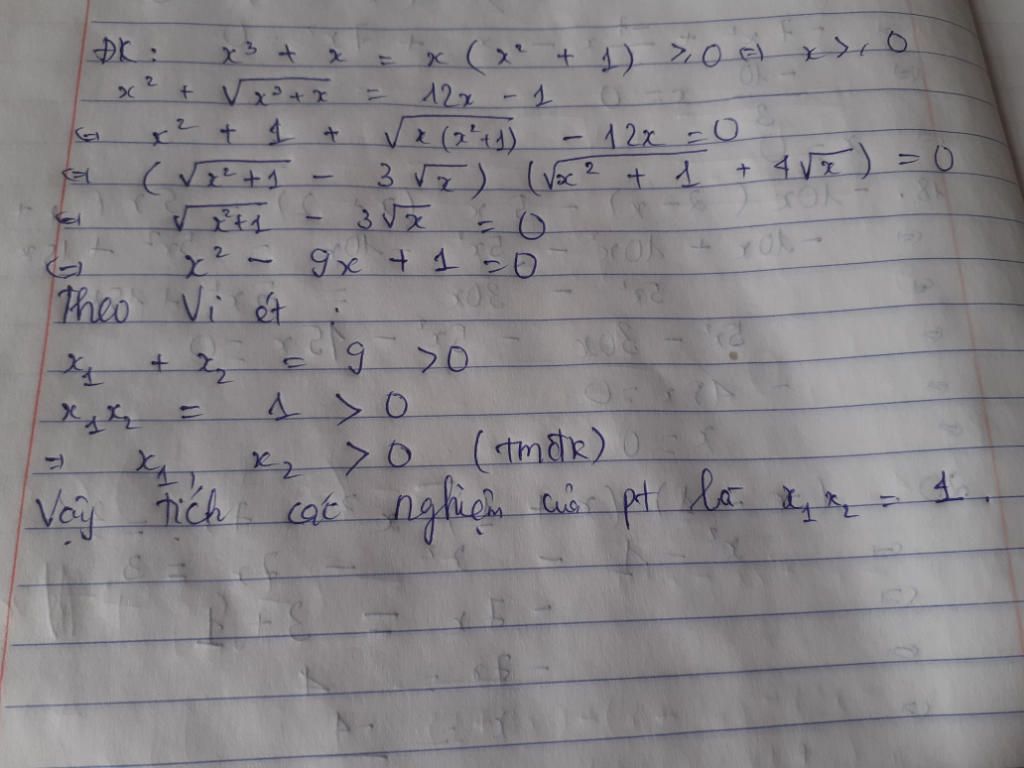 ĐK: x³ + x = x (x² + 1) ≥ 0 ⇔ x ≥ 0
x² + √(x³+x) = 12x - 1
⇔ x² + 1 + √(x(x²+1)) - 12x = 0
⇔ (√(x²+1) - 3√x) (√(x² + 1) + 4√x) = 0
⇔ √(x²+1) - 3√x = 0
⇔ x² - 9x + 1 = 0
Theo Vi ét :
x₁ + x₂ = 9 > 0
x₁x₂ = 1 > 0
⇒ x₁, x₂ > 0 (tmđk)
Vậy tích các nghiệm của pt là x₁x₂ = 1.